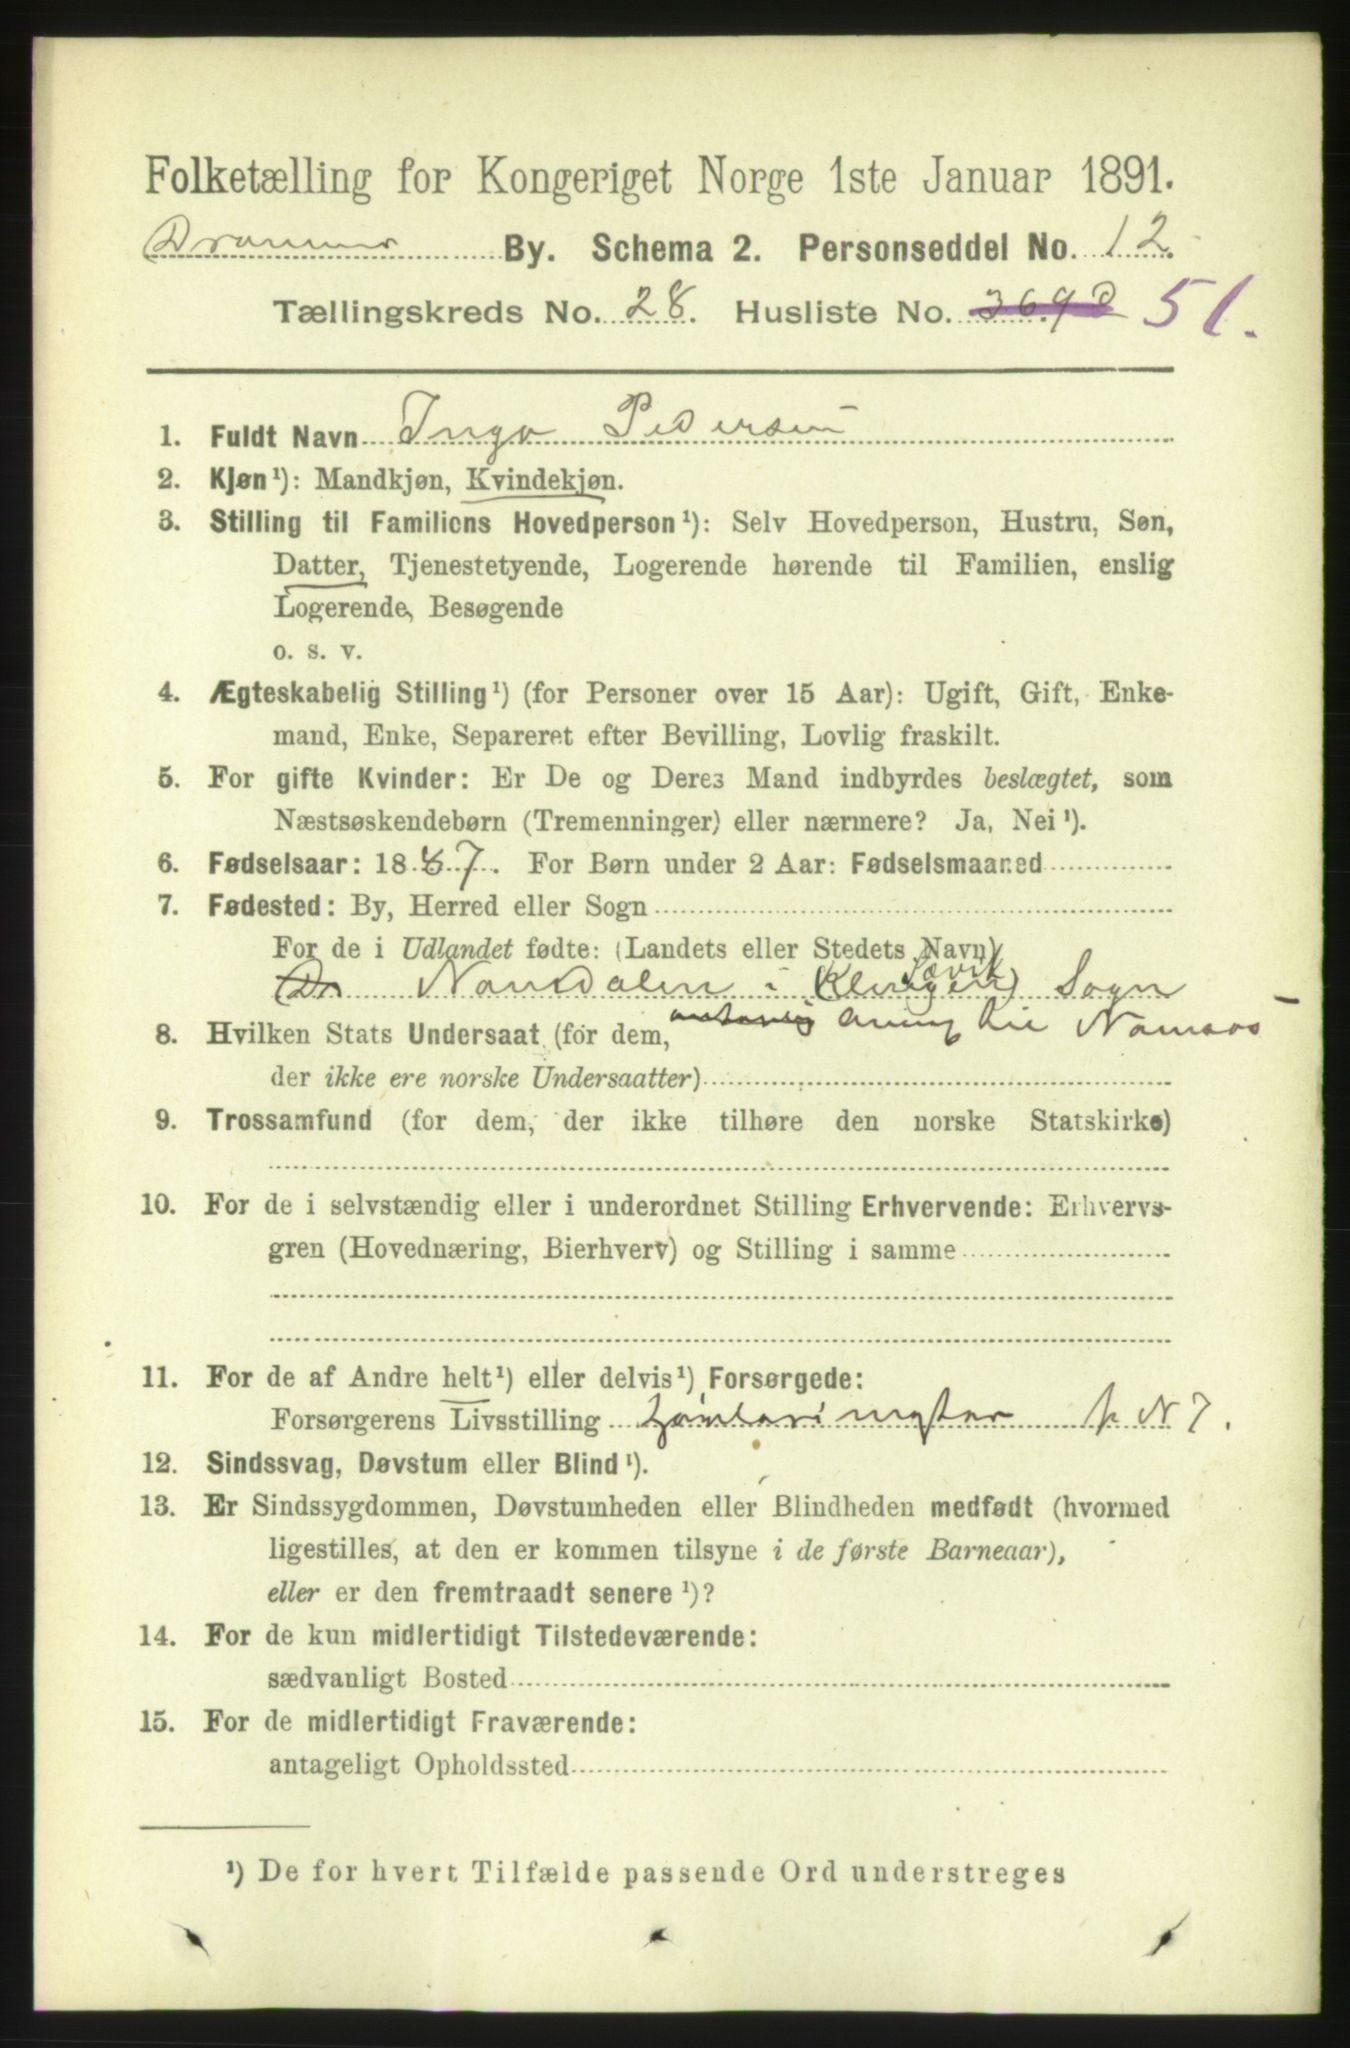 Folketælling for Kongeriget Norge 1ste Januar 1891.
Drammen By. Schema 2. Personseddel No. 12.
Tællingskreds No. 28. Husliste No. 369 51.
1. Fuldt Navn Inga Pedersen
2. Kjøn¹): Mandkjøn, Kvindekjøn.
3. Stilling til Familiens Hovedperson¹): Selv Hovedperson, Hustru, Søn,
Datter, Tjenestetyende, Logerende hørende til Familien, enslig
Logerende, Besøgende
o. s. v.
4. Ægteskabelig Stilling¹) (for Personer over 15 Aar): Ugift, Gift, Enke-
mand, Enke, Separeret efter Bevilling, Lovlig fraskilt.
5. For gifte Kvinder: Er De og Deres Mand indbyrdes beslægtet, som
Næstsøskendebørn (Tremenninger) eller nærmere? Ja, Nei¹).
6. Fødselsaar: 1887. For Børn under 2 Aar: Fødselsmaaned
7. Fødested: By, Herred eller Sogn
For de i Udlandet fødte: (Landets eller Stedets Navn)
Dr Namdalen i (Klingen) Sogn
8. Hvilken Stats Undersaat (for dem, til Namsos
der ikke ere norske Undersaatter)
9. Trossamfund (for dem, der ikke tilhøre den norske Statskirke)
10. For de i selvstændig eller i underordnet Stilling Erhvervende: Erhvervs-
gren (Hovednæring, Bierhverv) og Stilling i samme
11. For de af Andre helt¹) eller delvis¹) Forsørgede:
Forsørgerens Livsstilling N 7.
12. Sindssvag, Døvstum eller Blind¹).
13. Er Sindssygdommen, Døvstumheden eller Blindheden medfødt (hvormed
ligestilles, at den er kommen tilsyne i de første Barneaar),
eller er den fremtraadt senere¹)?
14. For de kun midlertidigt Tilstedeværende:
sædvanligt Bosted
15. For de midlertidigt Fraværende:
antageligt Opholdssted
¹) De for hvert Tilfælde passende Ord understreges